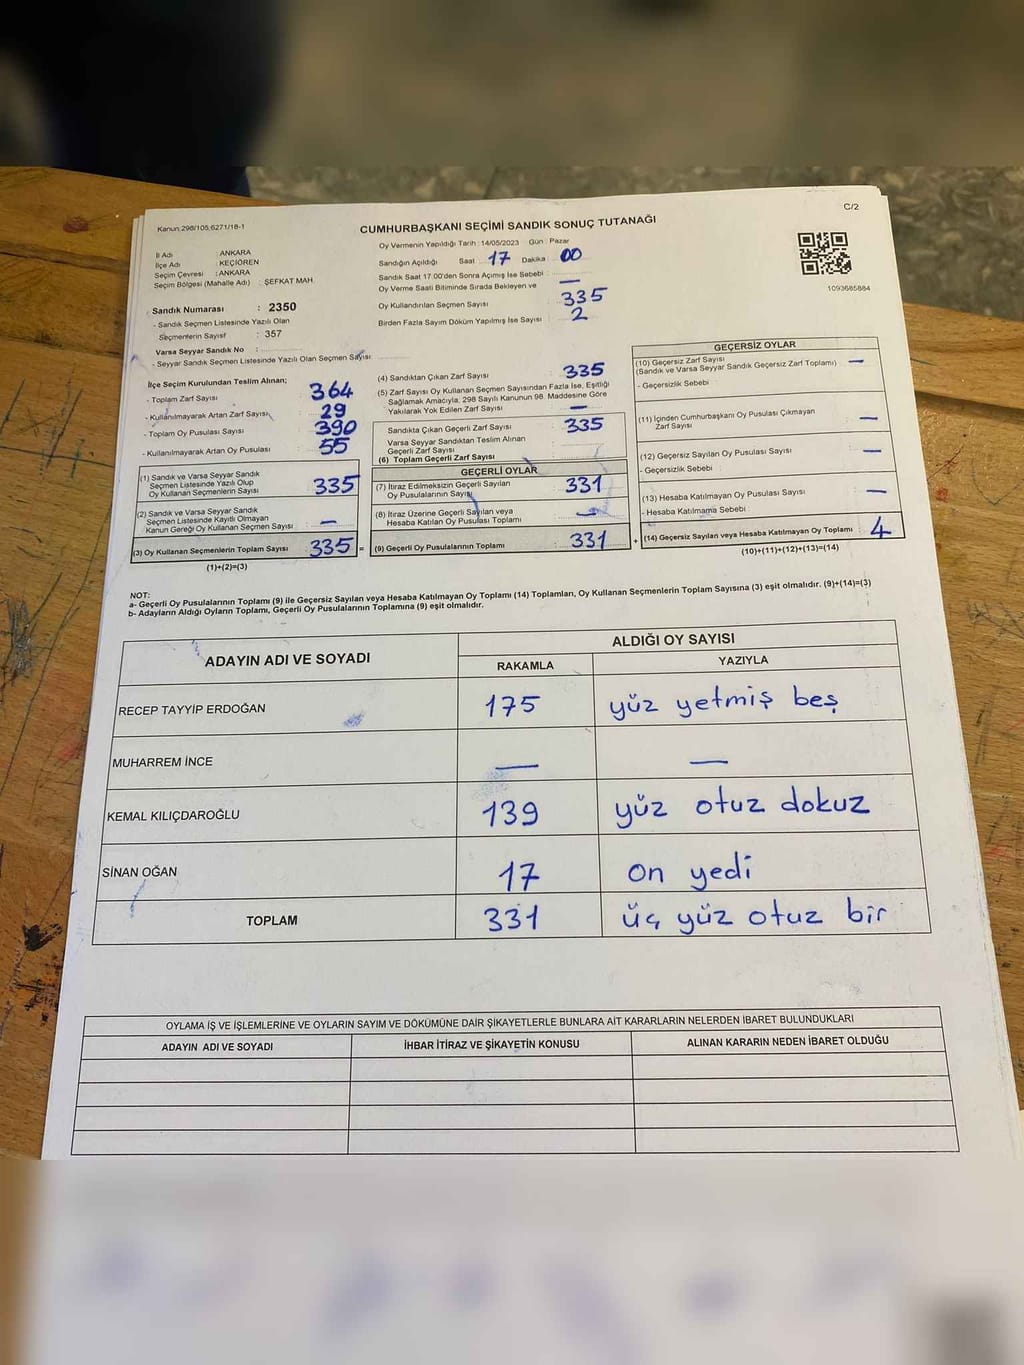 C/2
Kanun: 298/105,6271/18-1
CUMHURBAŞKANI SEÇİMİ SANDIK SONUÇ TUTANAĞI
İl Adı : ANKARA
İlçe Adı : KEÇİÖREN
Seçim Çevresi : ANKARA
Seçim Bölgesi (Mahalle Adı) : ŞEFKAT MAH.
Oy Vermenin Yapıldığı Tarih : 14/05/2023 Gün : Pazar
Sandığın Açıldığı Saat : 17 Dakika : 00
Sandık Saat 17.00'den Sonra Açılmış İse Sebebi : —
Oy Verme Saati Bitiminde Sırada Bekleyen ve
Oy Kullandırılan Seçmen Sayısı : 335
Birden Fazla Sayım Döküm Yapılmış İse Sayısı : 2
1093685884
Sandık Numarası : 2350
- Sandık Seçmen Listesinde Yazılı Olan
Seçmenlerin Sayısı : 357
Varsa Seyyar Sandık No :
- Seyyar Sandık Seçmen Listesinde Yazılı Olan Seçmen Sayısı:
İlçe Seçim Kurulundan Teslim Alınan;
- Toplam Zarf Sayısı : 364
- Kullanılmayarak Artan Zarf Sayısı : 29
- Toplam Oy Pusulası Sayısı : 390
- Kullanılmayarak Artan Oy Pusulası : 55
(1) Sandık ve Varsa Seyyar Sandık
Seçmen Listesinde Yazılı Olup
Oy Kullanan Seçmenlerin Sayısı : 335
(2) Sandık ve Varsa Seyyar Sandık
Seçmen Listesinde Kayıtlı Olmayan
Kanun Gereği Oy Kullanan Seçmen Sayısı : —
(3) Oy Kullanan Seçmenlerin Toplam Sayısı : 335 =
(1)+(2)=(3)
(4) Sandıktan Çıkan Zarf Sayısı : 335
(5) Zarf Sayısı Oy Kullanan Seçmen Sayısından Fazla İse, Eşitliği
Sağlamak Amacıyla, 298 Sayılı Kanunun 98. Maddesine Göre
Yakılarak Yok Edilen Zarf Sayısı : —
Sandıkta Çıkan Geçerli Zarf Sayısı : 335
Varsa Seyyar Sandıktan Teslim Alınan
Geçerli Zarf Sayısı :
(6) Toplam Geçerli Zarf Sayısı :
GEÇERLİ OYLAR
(7) İtiraz Edilmeksizin Geçerli Sayılan
Oy Pusulalarının Sayısı : 331
(8) İtiraz Üzerine Geçerli Sayılan veya
Hesaba Katılan Oy Pusulası Toplamı : —
(9) Geçerli Oy Pusulalarının Toplamı : 331 +
GEÇERSİZ OYLAR
(10) Geçersiz Zarf Sayısı : —
(Sandık ve Varsa Seyyar Sandık Geçersiz Zarf Toplamı)
- Geçersizlik Sebebi :
(11) İçinden Cumhurbaşkanı Oy Pusulası Çıkmayan
Zarf Sayısı : —
(12) Geçersiz Sayılan Oy Pusulası Sayısı : —
- Geçersizlik Sebebi :
(13) Hesaba Katılmayan Oy Pusulası Sayısı : —
- Hesaba Katılmama Sebebi :
(14) Geçersiz Sayılan veya Hesaba Katılmayan Oy Toplamı : 4
(10)+(11)+(12)+(13)=(14)
NOT:
a- Geçerli Oy Pusulalarının Toplamı (9) ile Geçersiz Sayılan veya Hesaba Katılmayan Oy Toplamı (14) Toplamları, Oy Kullanan Seçmenlerin Toplam Sayısına (3) eşit olmalıdır. (9)+(14)=(3)
b- Adayların Aldığı Oyların Toplamı, Geçerli Oy Pusulalarının Toplamına (9) eşit olmalıdır.
ADAYIN ADI VE SOYADI
ALDIĞI OY SAYISI
RAKAMLA YAZIYLA
RECEP TAYYİP ERDOĞAN 175 yüz yetmiş beş
MUHARREM İNCE — —
KEMAL KILIÇDAROĞLU 139 yüz otuz dokuz
SİNAN OĞAN 17 on yedi
TOPLAM 331 üç yüz otuz bir
OYLAMA İŞ VE İŞLEMLERİNE VE OYLARIN SAYIM VE DÖKÜMÜNE DAİR ŞİKAYETLERLE BUNLARA AİT KARARLARIN NELERDEN İBARET BULUNDUKLARI
ADAYIN ADI VE SOYADI İHBAR İTİRAZ VE ŞİKAYETİN KONUSU ALINAN KARARIN NEDEN İBARET OLDUĞU